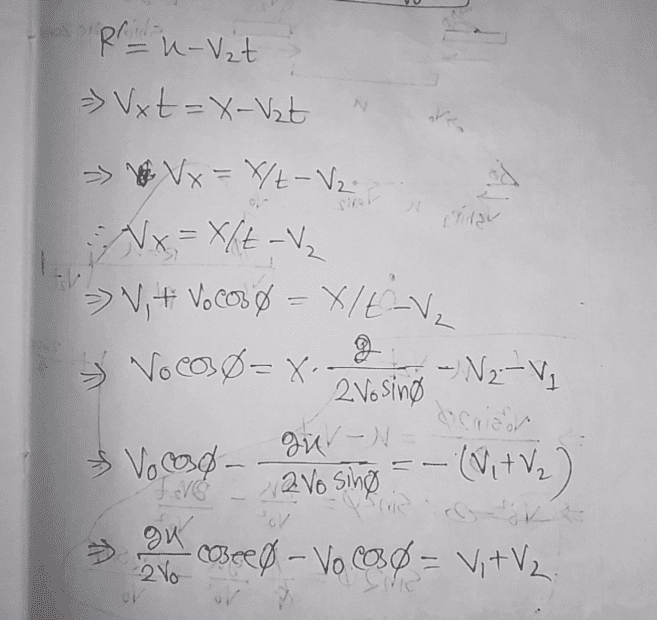 R' = x - V₂t
⇒ Vₓt = X - V₂t
⇒ Vₓ = X/t - V₂
∴ Vₓ = X/t - V₂
⇒ V₁ + V₀cosø = X/t - V₂
⇒ V₀cosø = X. g / 2V₀sinø - V₂ - V₁
⇒ V₀cosø - gx / 2V₀ sinø = - (V₁ + V₂)
⇒ gx / 2V₀ cosecø - V₀cosø = V₁ + V₂